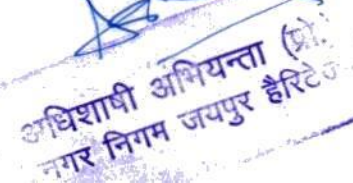 अधिशाषी अभियन्ता (प्रो.
नगर निगम जयपुर हैरिटेज